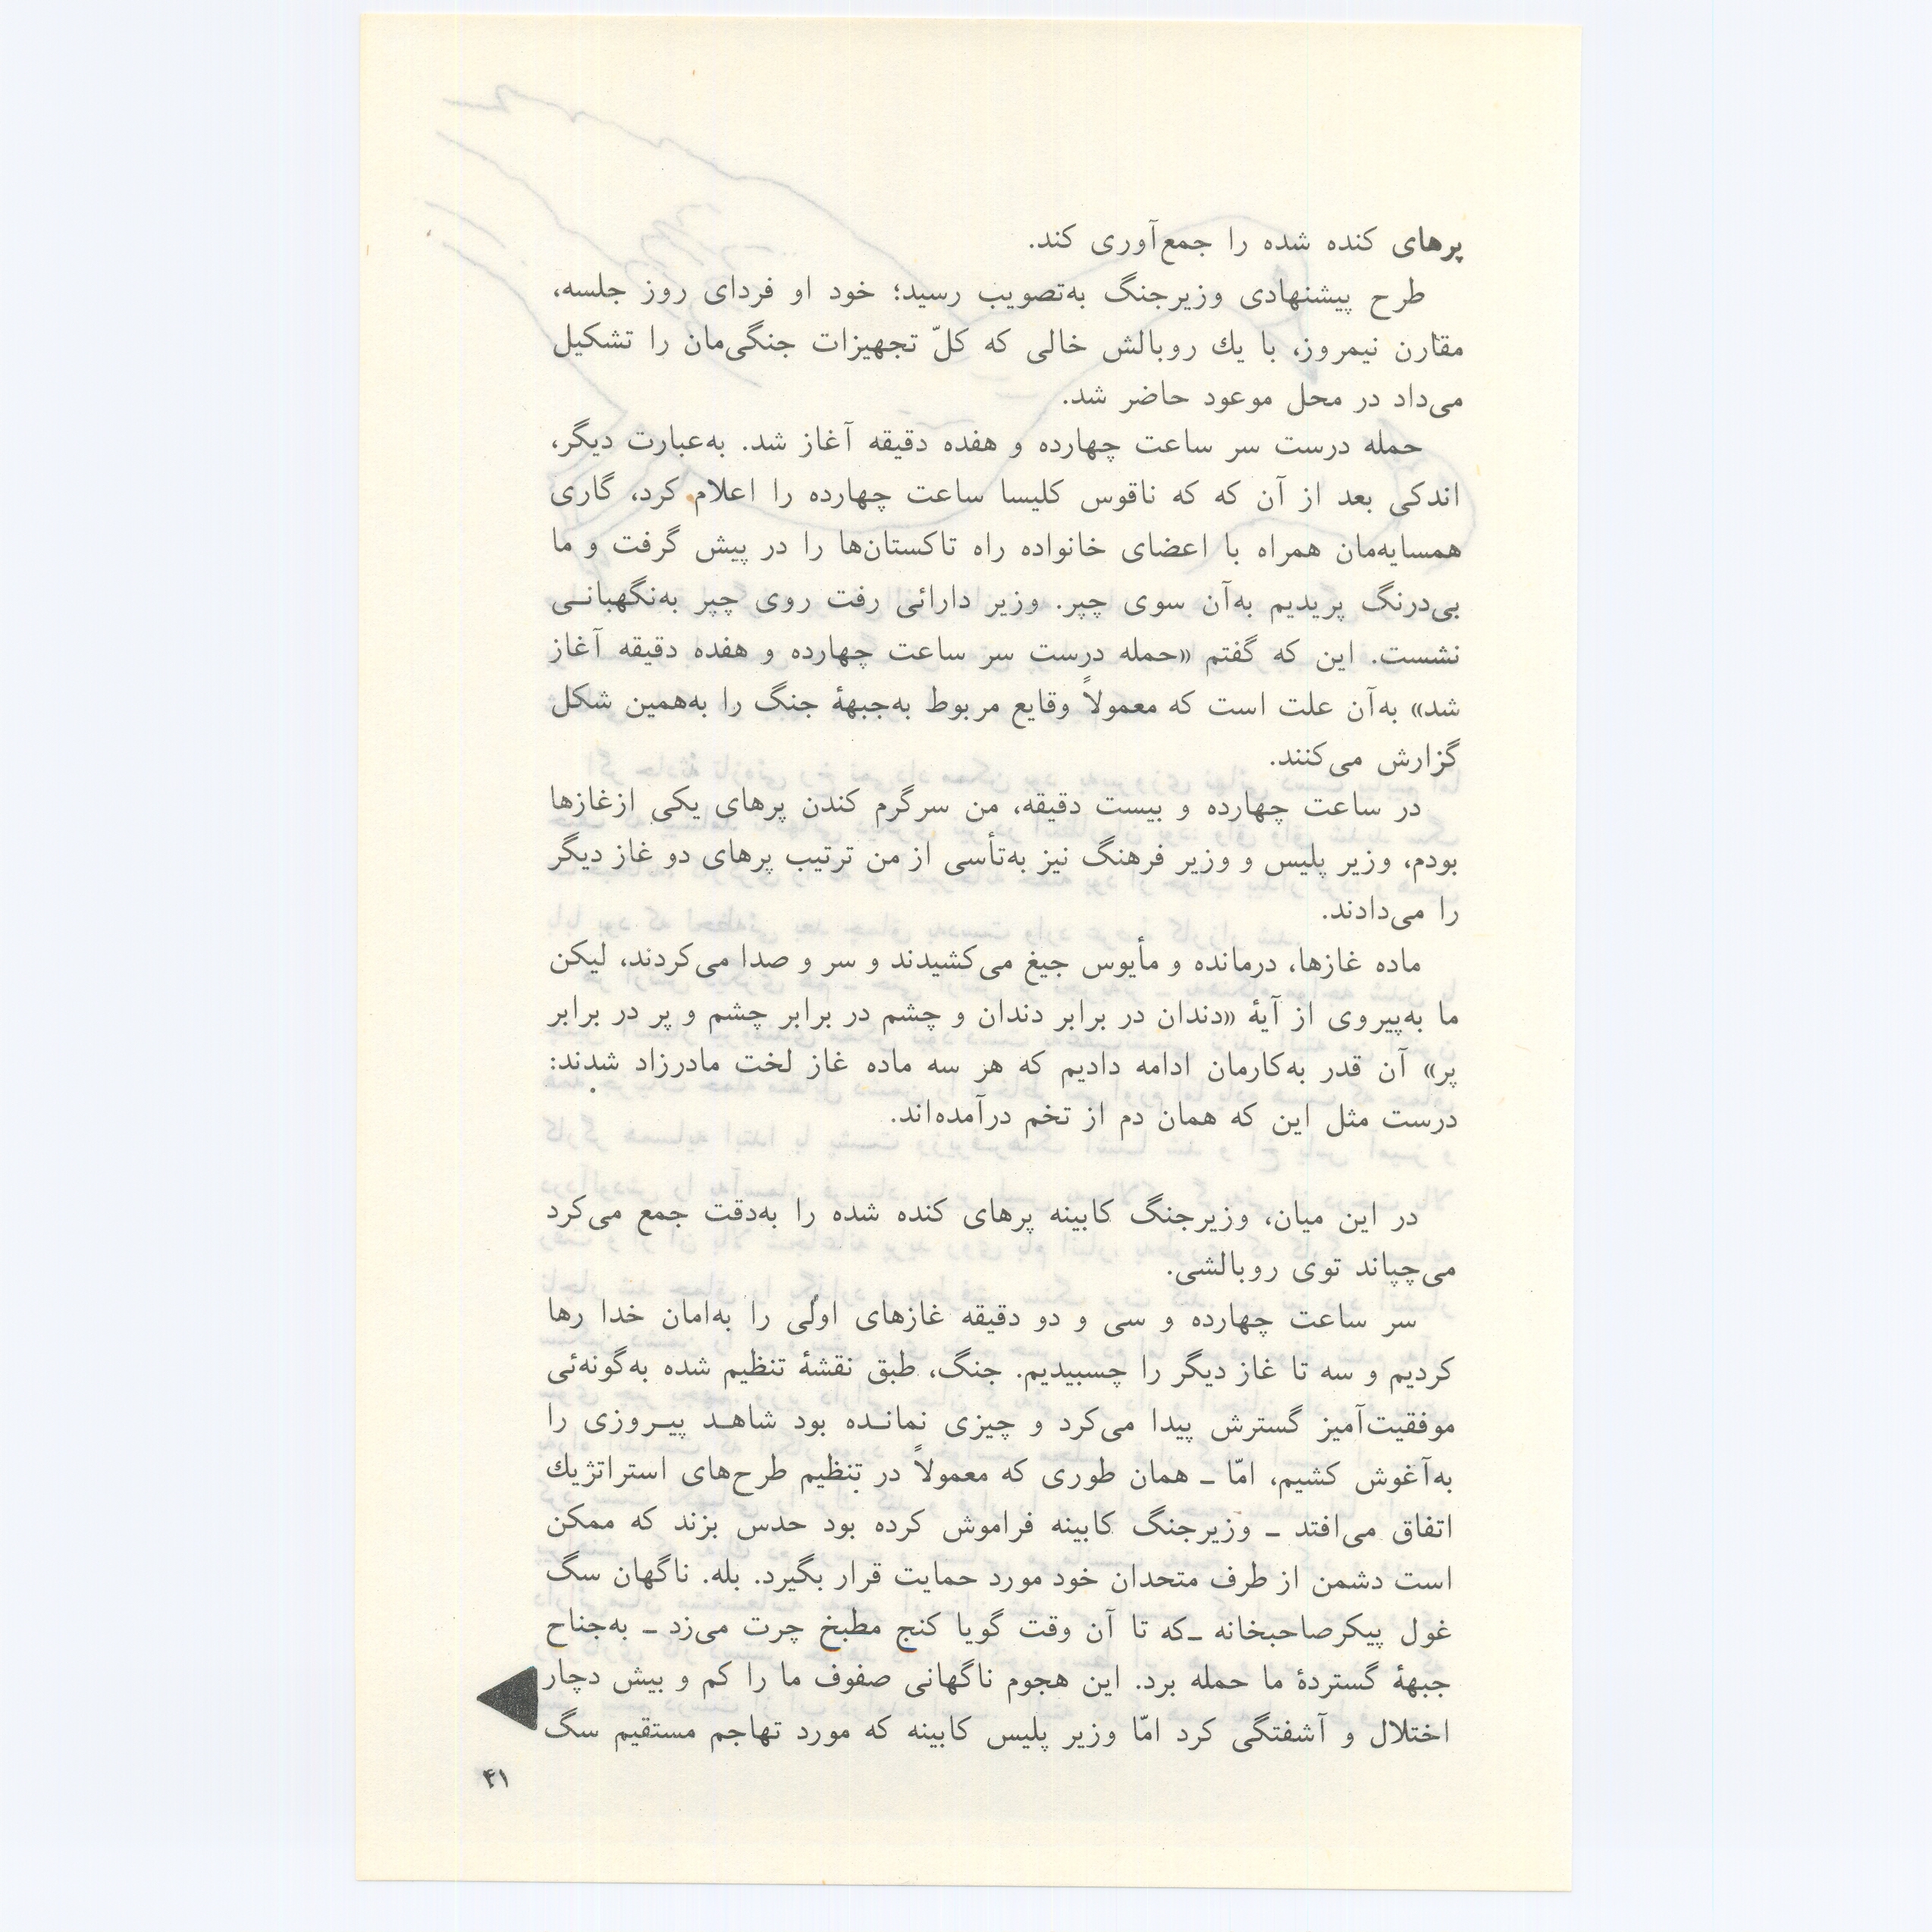 پرهای کنده شده را جمع‌آوری کند.
طرح پیشنهادی وزیرجنگ به‌تصویب رسید؛ خود او فردای روز جلسه،
مقارن نیمروز، با یك روبالش خالی که کلّ تجهیزات جنگی‌مان را تشکیل
می‌داد در محل موعود حاضر شد.
حمله درست سر ساعت چهارده و هفده دقیقه آغاز شد. به‌عبارت دیگر،
اندکی بعد از آن که که ناقوس کلیسا ساعت چهارده را اعلام کرد، گاری
همسایه‌مان همراه با اعضای خانواده راه تاکستان‌ها را در پیش گرفت و ما
بی‌درنگ پریدیم به‌آن سوی چپر. وزیر دارائی رفت روی چپر به‌نگهبانـی
نشست. این که گفتم «حمله درست سر ساعت چهارده و هفده دقیقه آغاز
شد» به‌آن علت است که معمولاً وقایع مربوط به‌جبههٔ جنگ را به‌همین شکل
گزارش می‌کنند.
در ساعت چهارده و بیست دقیقه، من سرگرم کندن پرهای یکی ازغازها
بودم، وزیر پلیس و وزیر فرهنگ نیز به‌تأسی از من ترتیب پرهای دو غاز دیگر
را می‌دادند.
ماده غازها، درمانده و مأیوس جیغ می‌کشیدند و سر و صدا می‌کردند، لیکن
ما به‌پیروی از آیهٔ «دندان در برابر دندان و چشم در برابر چشم و پر در برابر
پر» آن قدر به‌کارمان ادامه دادیم که هر سه ماده غاز لخت مادرزاد شدند:
درست مثل این که همان دم از تخم درآمده‌اند.
در این میان، وزیرجنگ کابینه پرهای کنده شده را به‌دقت جمع می‌کرد
می‌چپاند توی روبالشی.
سر ساعت چهارده و سی و دو دقیقه غازهای اولی را به‌امان خدا رها
کردیم و سه تا غاز دیگر را چسبیدیم. جنگ، طبق نقشهٔ تنظیم شده به‌گونه‌ئی
موفقیت‌آمیز گسترش پیدا می‌کرد و چیزی نمانـده بود شاهـد پیـروزی را
به‌آغوش کشیم، امّا ـ همان طوری که معمولاً در تنظیم طرح‌های استراتژیك
اتفاق می‌افتد ـ وزیرجنگ کابینه فراموش کرده بود حدس بزند که ممکن
است دشمن از طرف متحدان خود مورد حمایت قرار بگیرد. بله. ناگهان سگ
غول پیکرصاحبخانه ـ‌که تا آن وقت گویا کنج مطبخ چرت می‌زد ـ به‌جناح
جبههٔ گستردهٔ ما حمله برد. این هجوم ناگهانی صفوف ما را کم و بیش دچار
اختلال و آشفتگی کرد امّا وزیر پلیس کابینه که مورد تهاجم مستقیم سگ
۴۱